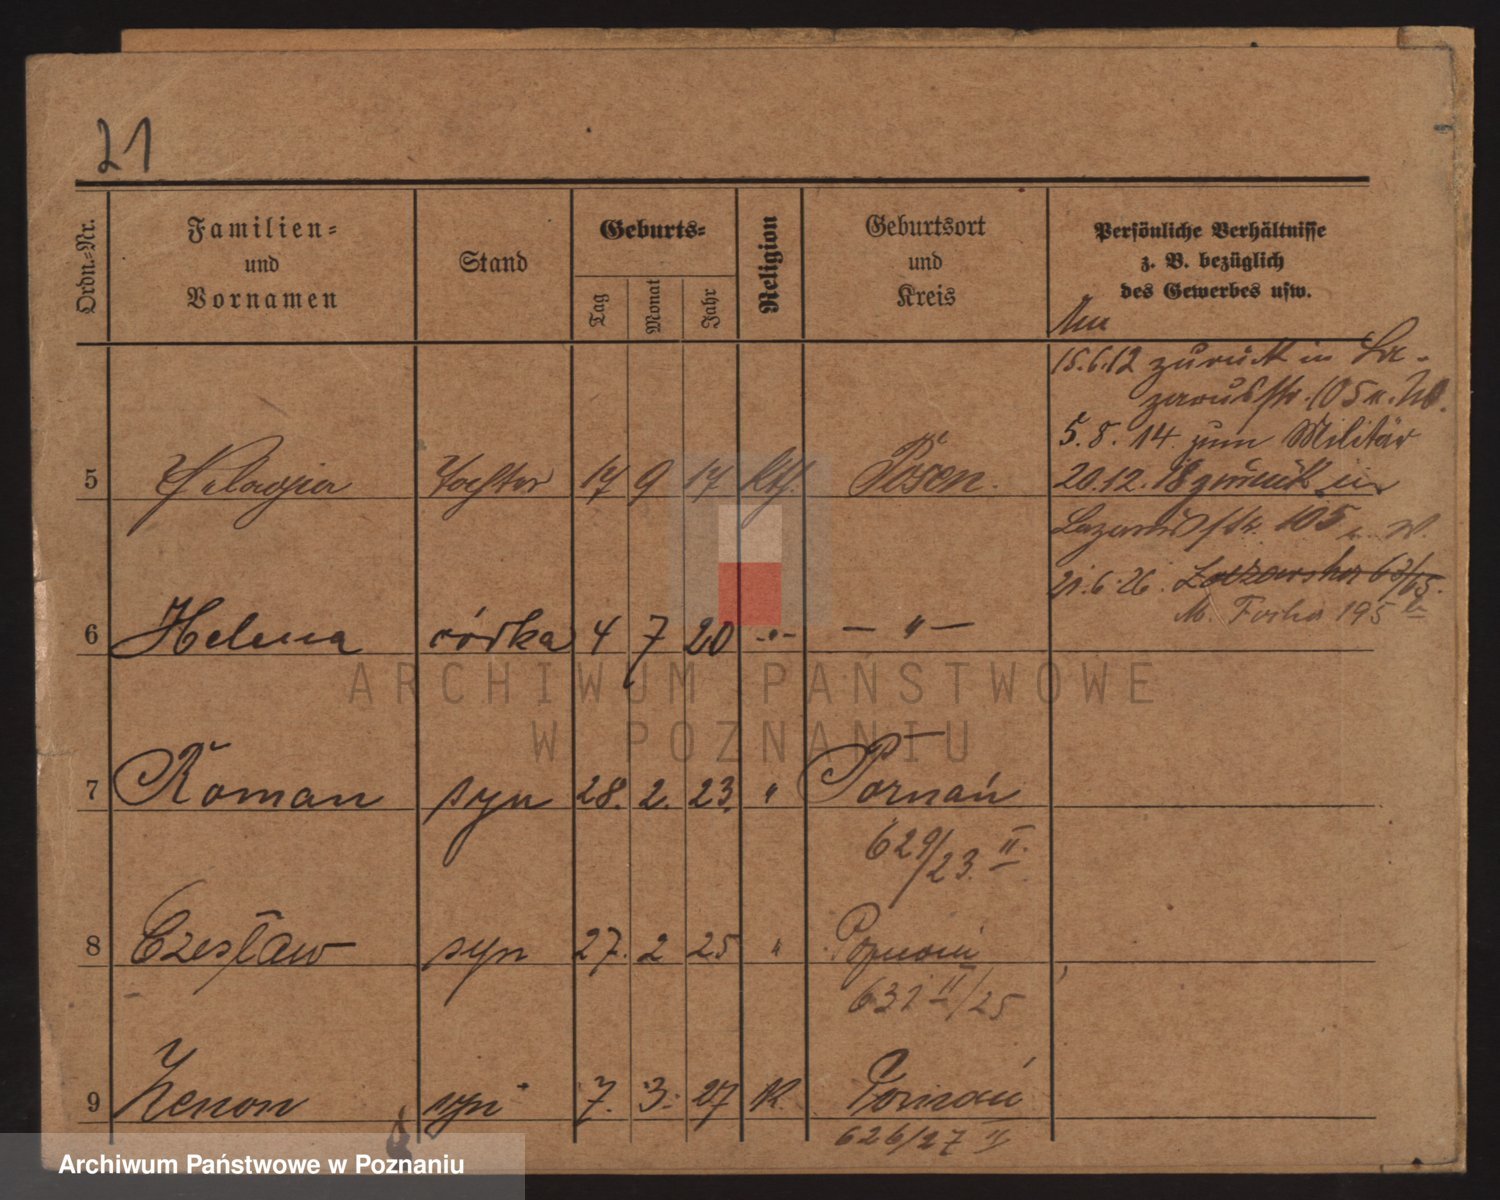 21
Ordn.-Nr.
Familien-
und
Vornamen
Stand
Geburts-
Tag
Monat
Jahr
Religion
Geburtsort
und
Kreis
Persönliche Verhältnisse
z. B. bezüglich
des Gewerbes usw.
15.6.12 zurück in La-
zarusstr. 105 u. W.
5.8.14 zum Militär
20.12.18 zurück in
Lazarusstr. 105 u. W.
21.6.26.
M. Focha 195
5 Pelagia Tochter 17 9 17 kth. Posen.
6 Helena córka 4 7 20 -"- — " —
7 Roman syn 28. 2. 23. " Poznań
629/23. II.
8 Czesław syn 27. 2 25 " Poznań
632 II/25
9 Zenon syn 7. 3. 27 K. Poznań
626/27 II
ARCHIWUM PAŃSTWOWE
W POZNANIU
Archiwum Państwowe w Poznaniu